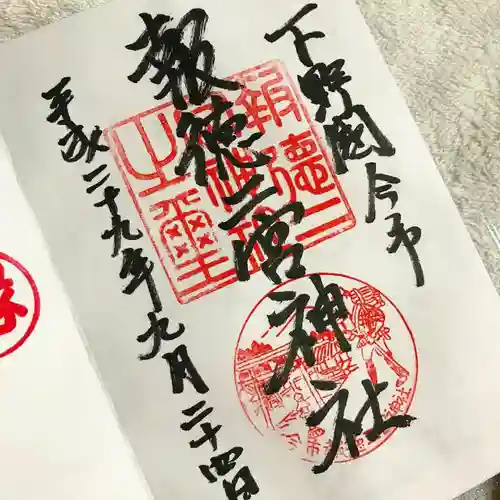 下野國今市
報徳二宮神社
平成二十九年九月二十四日
報徳二
之璽